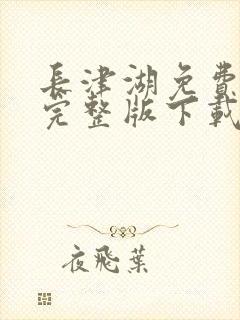 長津湖免費
完整版下載
夜飛葉